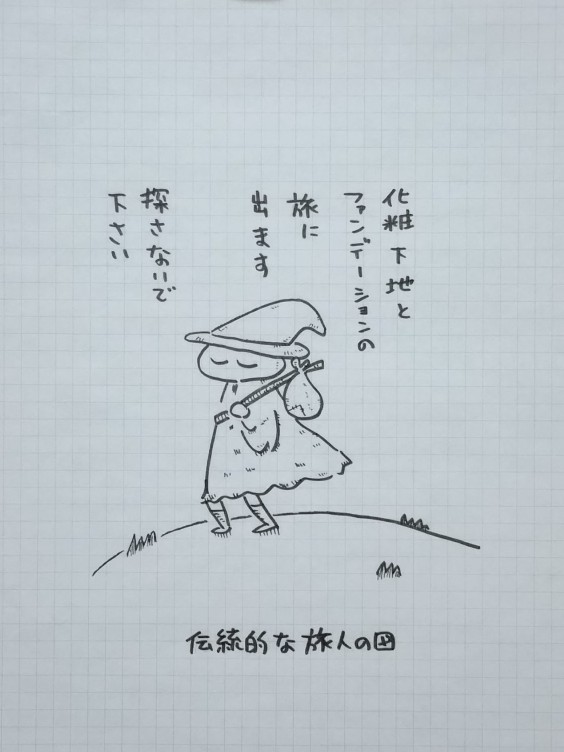 化粧下地と
ファンデーションの
旅に
出ます
探さないで
下さい
伝統的な旅人の図